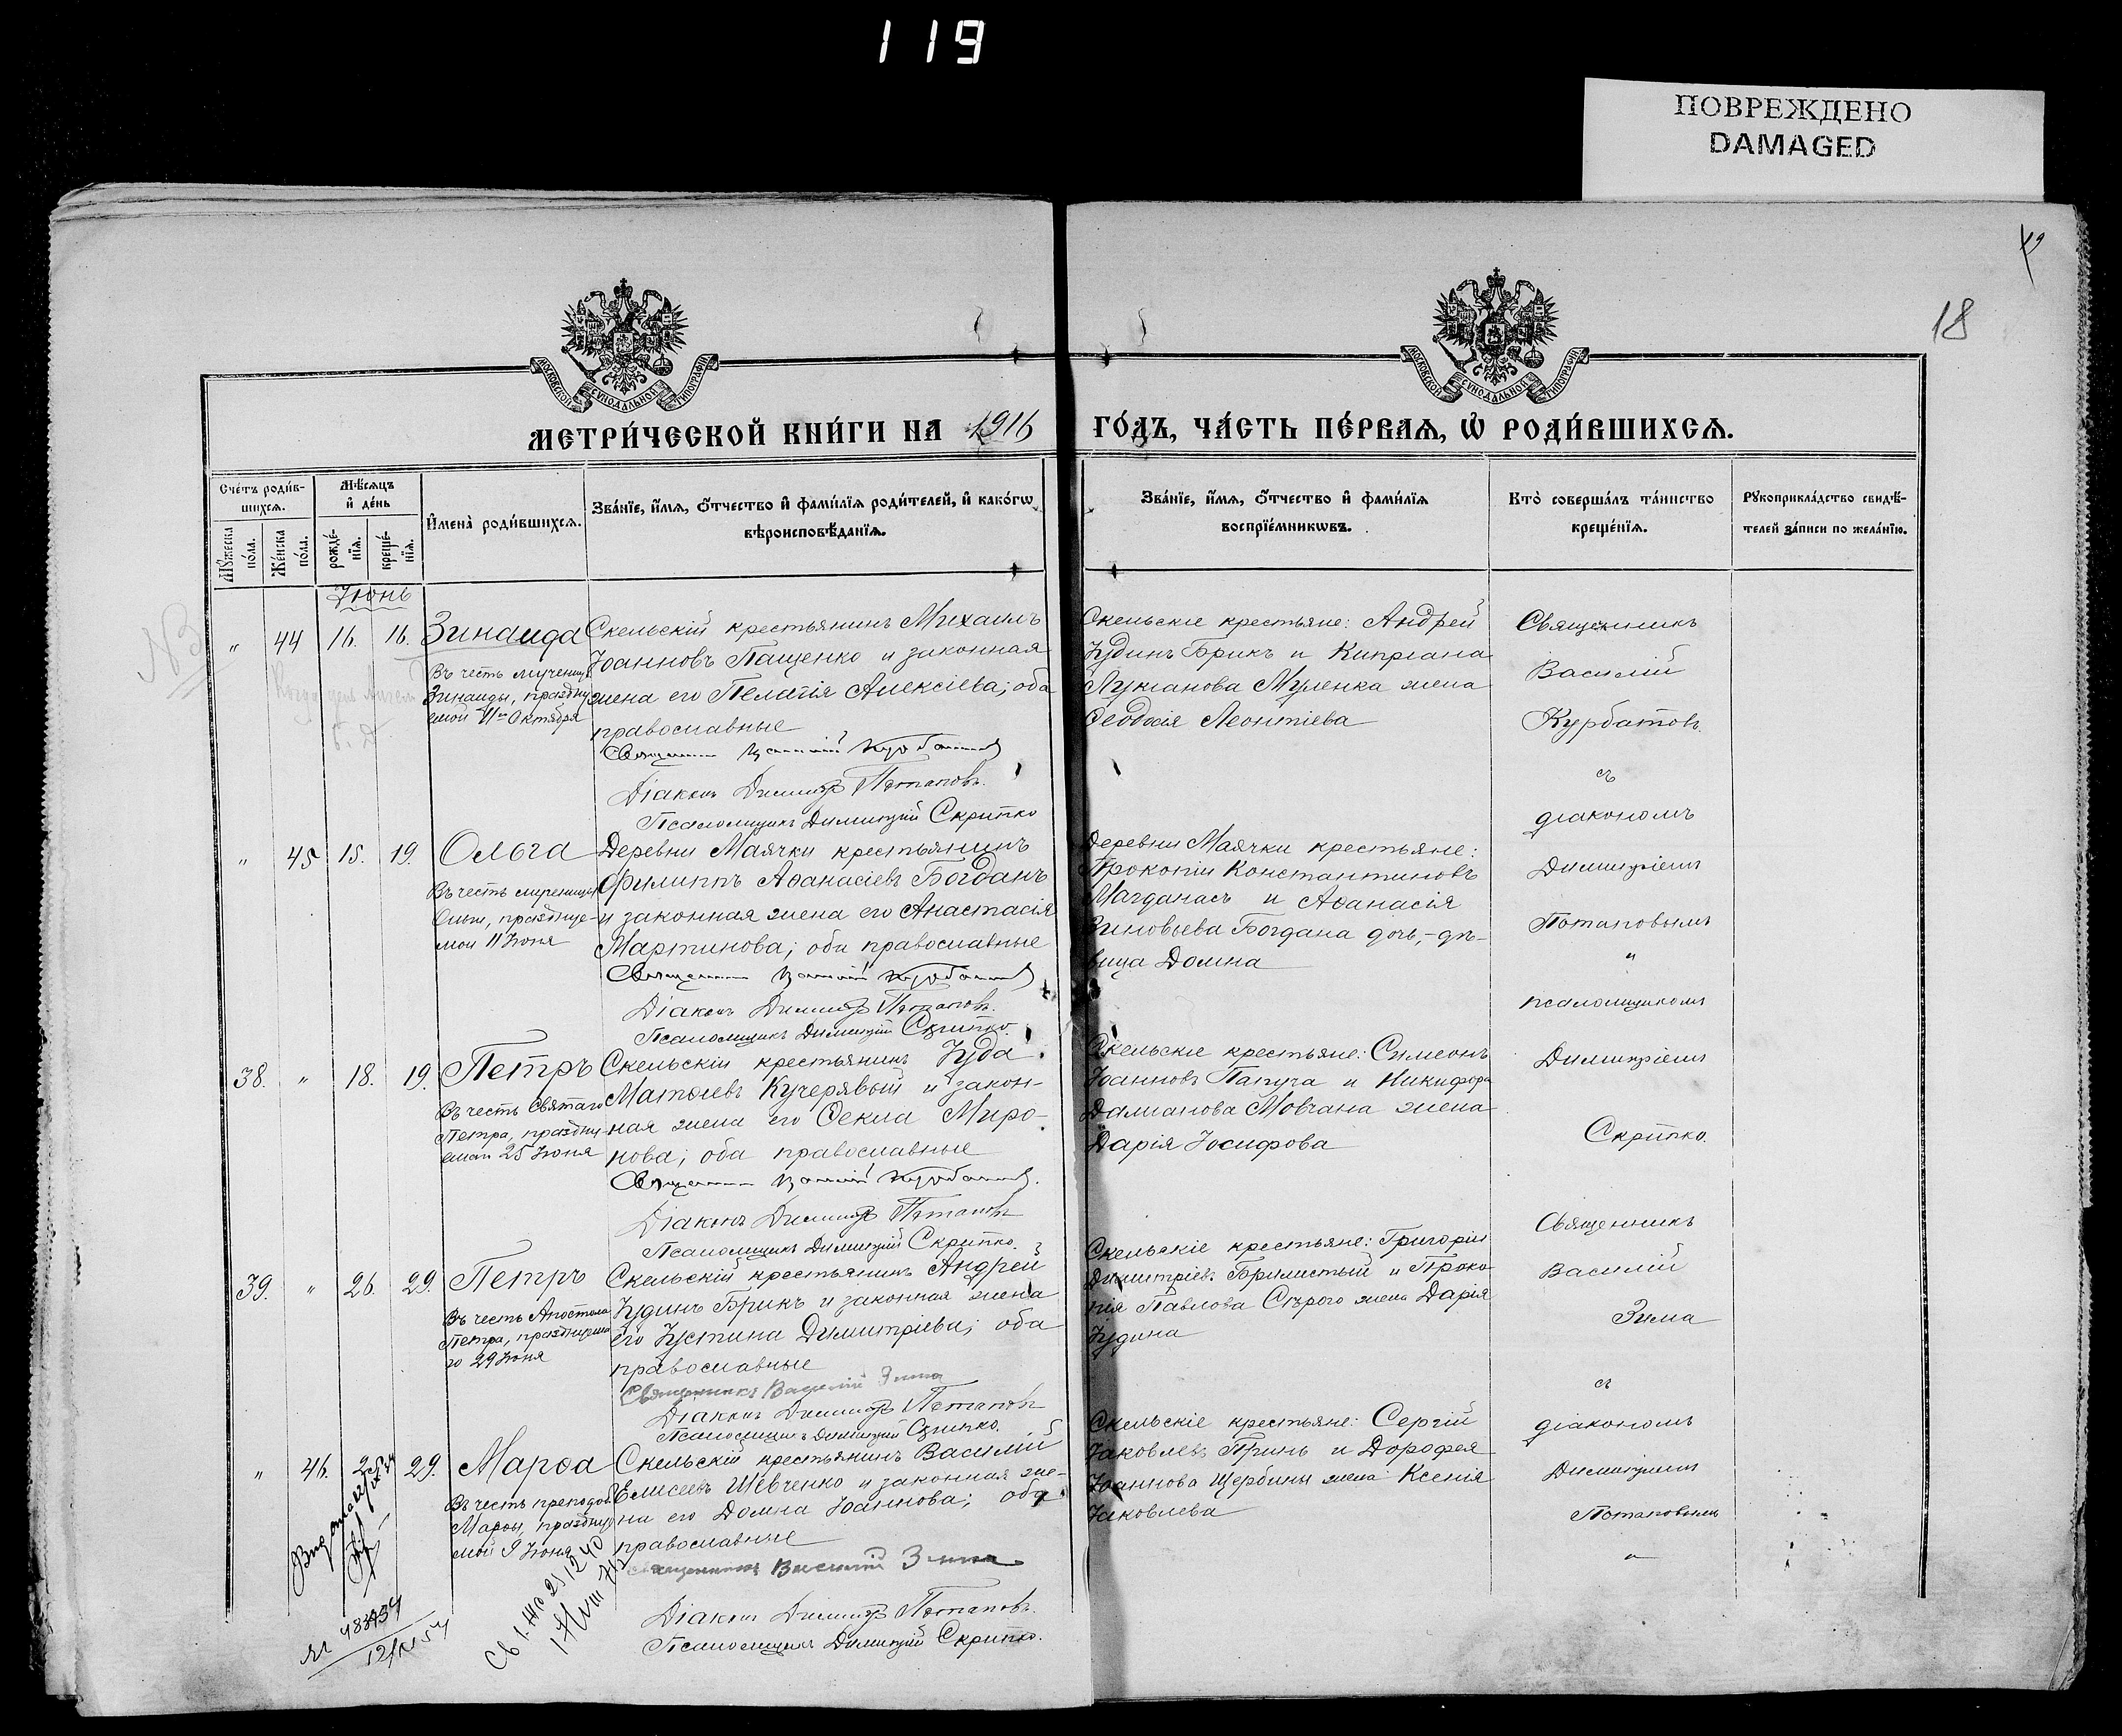 119
ПОВРЕЖДЕНО
DAMAGED
18
МОСКОВСКОЙ СѴНОДАЛЬНОЙ ТИПОГРАФІИ
МОСКОВСКОЙ СѴНОДАЛЬНОЙ ТИПОГРАФІИ
МЕТРИ́ЧЕСКОЙ КНИ́ГИ НА 1916 ГО́ДЪ, ЧА́СТЬ ПЕ́РВАѦ, Ѡ҆ РОДИ́ВШИХСѦ.
Сче́тъ роди́в-
шихсѧ.
Мꙋ́жеска по́ла.
Же́нска по́ла.
Мѣ́сѧцъ
и҆ де́нь
рожде́-
нїѧ.
креще́-
нїѧ.
И҆мена̀ роди́вшихсѧ.
Зва́нїе, и҆́мѧ, ѻ҆́тчество и҆ фамилїѧ роди́телей, и҆ како́гѡ
вѣроисповѣ́данїѧ.
Зва́нїе, и҆́мѧ, ѻ҆́тчество и҆ фами́лїѧ
воспрїе́мникѡвъ.
Кто̀ соверша́лъ та́инство
креще́нїѧ.
Рꙋкоприкла́дство свидѣ́-
телей за́писи по жела́нїю.
Іюнь
" 44 16. 16. Зинаида
Въ честь мучениц.
Зинаиды, праздну
емой 11го Октября
Скельскій крестьянинъ Михаилъ
Іоанновъ Пащенко и законная
жена его Пелагія Алексіева; оба
православные
Діаконъ Димитр Потаповъ.
Псаломщикъ Димитрій Скрипко
Скельскіе крестьяне: Андрей
Іудинъ Брикъ и Кипріана
Лукіанова Муленка жена
Ѳеодосія Леонтіева
Священникъ
Василій
Курбатовъ
съ
діакономъ
Димитріемъ
Потаповымъ
"
псаломщикомъ
Димитріемъ
Скрипко.
" 45 15. 19. Ольга
Въ честь мученицы
Ольги, празднуе-
мой 11 Іюля
Деревни Маячки крестьянинъ
Филиппъ Аѳанасіевъ Богданъ
и законная жена его Анастасія
Мартинова; оба православные
Діаконъ Димитр Потаповъ.
Псаломщикъ Димитрій Скрипко.
Деревни Маячки крестьяне:
Прокопій Константиновъ
Магданасъ и Аѳанасія
Зиновьева Богдана дочь,-дѣ-
вица Домна
38. " 18. 19. Петръ
Въ честь Святаго
Петра, праздну-
емаго 25 Іюня
Скельскій крестьянинъ Іуда
Матѳіевъ Кучерявый и закон-
ная жена его Ѳекла Миро-
нова; оба православные
Діаконъ Димитр Потаповъ
Псаломщикъ Димитрій Скрипко.
Скельскіе крестьяне: Симеонъ
Іоанновъ Папуча и Никифора
Даміанова Мовчана жена
Дарія Іосифова
39. " 26. 29. Петръ
Въ честь Апостола
Петра, празднуема
го 29 Іюня
Скельскій крестьянинъ Андрей
Іудинъ Брикъ и законная жена
его Іустина Димитріева; оба
православные
Священникъ Василій Зима
Діаконъ Димитр Потаповъ
Псаломщикъ Димитрій Скрипко.
Скельскіе крестьяне: Григорій
Димитріевъ Брилистый и Проко-
пія Павлова Сѣрого жена Дарія
Іудина
Священникъ
Василій
Зима
съ
діакономъ
Димитріемъ
Потаповымъ
"
" 46. 29. Марѳа
Въ честь преподоб.
Марѳы, праздну
мой 9 Іюня
Скельскій крестьянинъ Василій
Елисеевъ Шевченко и законная же-
на его Домна Іоаннова; оба
православные
Священникъ Василій Зима
Діаконъ Димитр Потаповъ.
Псаломщикъ Димитрій Скрипко.
Скельскіе крестьяне: Сергій
Іаковлевъ Принь и Дорофея
Іоаннова Щербины жена Ксенія
Іаковлева